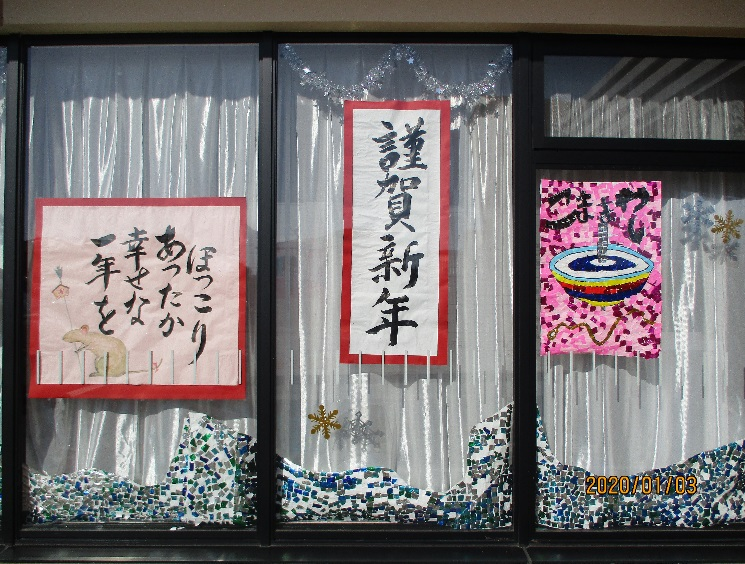 ほっこり
あったか
幸せな
一年を
謹賀新年
こままわし
2020/01/03